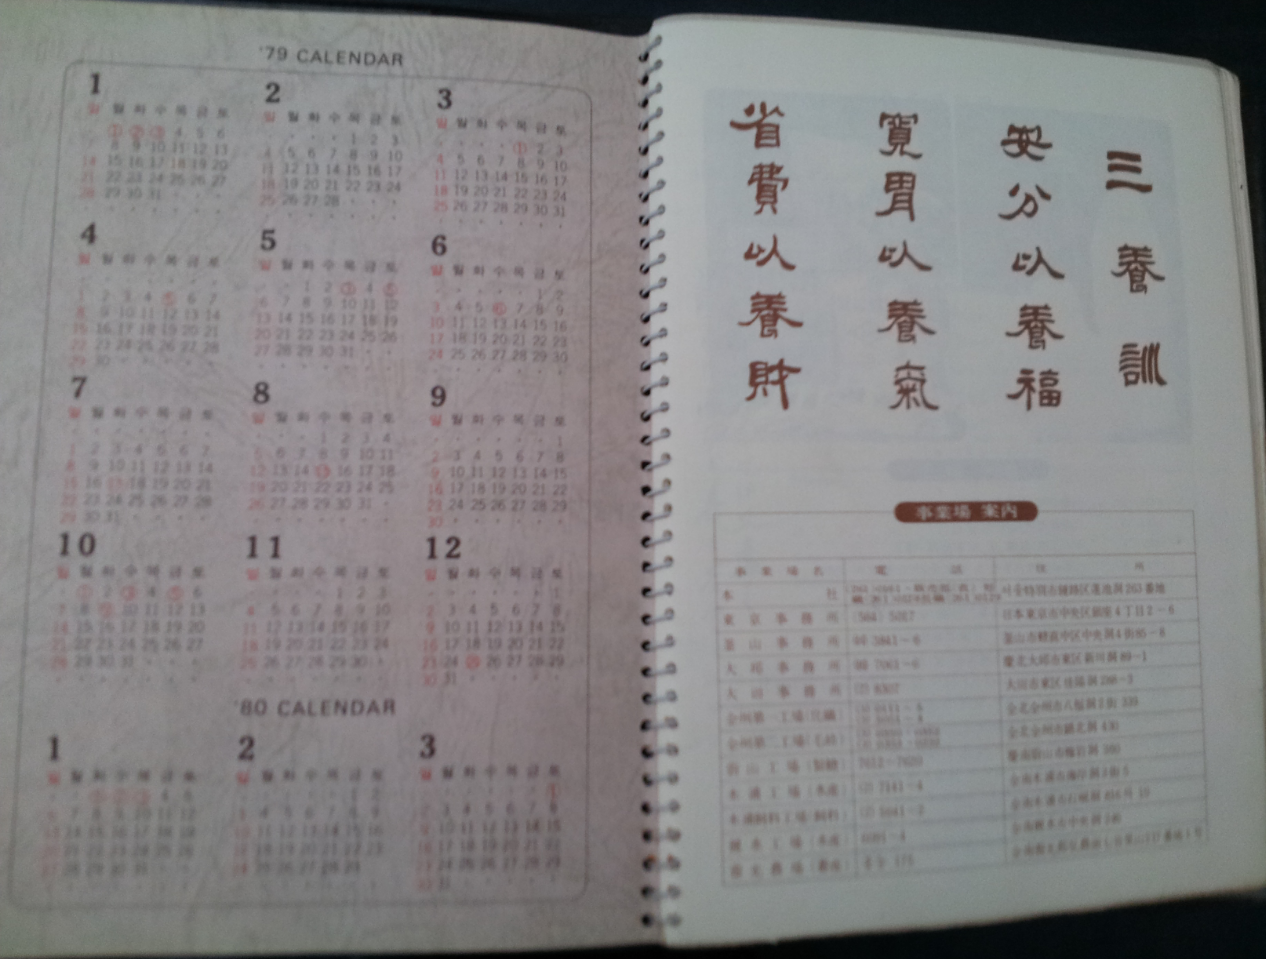 '79 CALENDAR
1
일 월 화 수 목 금 토
1 2 3 4 5 6
7 8 9 10 11 12 13
14 15 16 17 18 19 20
21 22 23 24 25 26 27
28 29 30 31
2
일 월 화 수 목 금 토
1 2 3
4 5 6 7 8 9 10
11 12 13 14 15 16 17
18 19 20 21 22 23 24
25 26 27 28
3
일 월 화 수 목 금 토
1 2 3
4 5 6 7 8 9 10
11 12 13 14 15 16 17
18 19 20 21 22 23 24
25 26 27 28 29 30 31
4
일 월 화 수 목 금 토
1 2 3 4 5 6 7
8 9 10 11 12 13 14
15 16 17 18 19 20 21
22 23 24 25 26 27 28
29 30
5
일 월 화 수 목 금 토
1 2 3 4 5
6 7 8 9 10 11 12
13 14 15 16 17 18 19
20 21 22 23 24 25 26
27 28 29 30 31
6
일 월 화 수 목 금 토
1 2
3 4 5 6 7 8 9
10 11 12 13 14 15 16
17 18 19 20 21 22 23
24 25 26 27 28 29 30
7
일 월 화 수 목 금 토
1 2 3 4 5 6 7
8 9 10 11 12 13 14
15 16 17 18 19 20 21
22 23 24 25 26 27 28
29 30 31
8
일 월 화 수 목 금 토
1 2 3 4
5 6 7 8 9 10 11
12 13 14 15 16 17 18
19 20 21 22 23 24 25
26 27 28 29 30 31
9
일 월 화 수 목 금 토
1
2 3 4 5 6 7 8
9 10 11 12 13 14 15
16 17 18 19 20 21 22
23 24 25 26 27 28 29
30
10
일 월 화 수 목 금 토
1 2 3 4 5 6
7 8 9 10 11 12 13
14 15 16 17 18 19 20
21 22 23 24 25 26 27
28 29 30 31
11
일 월 화 수 목 금 토
1 2 3
4 5 6 7 8 9 10
11 12 13 14 15 16 17
18 19 20 21 22 23 24
25 26 27 28 29 30
12
일 월 화 수 목 금 토
1
2 3 4 5 6 7 8
9 10 11 12 13 14 15
16 17 18 19 20 21 22
23 24 25 26 27 28 29
30 31
'80 CALENDAR
1
일 월 화 수 목 금 토
1 2 3 4 5
6 7 8 9 10 11 12
13 14 15 16 17 18 19
20 21 22 23 24 25 26
27 28 29 30 31
2
일 월 화 수 목 금 토
1 2
3 4 5 6 7 8 9
10 11 12 13 14 15 16
17 18 19 20 21 22 23
24 25 26 27 28 29
3
일 월 화 수 목 금 토
1
2 3 4 5 6 7 8
9 10 11 12 13 14 15
16 17 18 19 20 21 22
23 24 25 26 27 28 29
30 31
三養訓
安分以養福
寬胃以養氣
省費以養財
事業場 案內
事業場名 電話 住所
本社 서울特別市鍾路區蓮池洞263番地
東京事務所 (564) 5017 日本東京市中央区銀座4丁目2-6
釜山事務所 釜山市中区中央洞4街85-8
大邱事務所 慶北大邱市東区新川洞
大田事務所 (2) 8307 大田市東区
全州第一工場 全北全州市八福洞2街 339
全州第二工場 全北全州市
蔚山工場 7612-7620 慶南蔚山市
木浦工場(水産) (2) 7141-4 全南木浦市
木浦飼料工場(飼料) 全南木浦市
麗水工場(水産) 全南麗水市